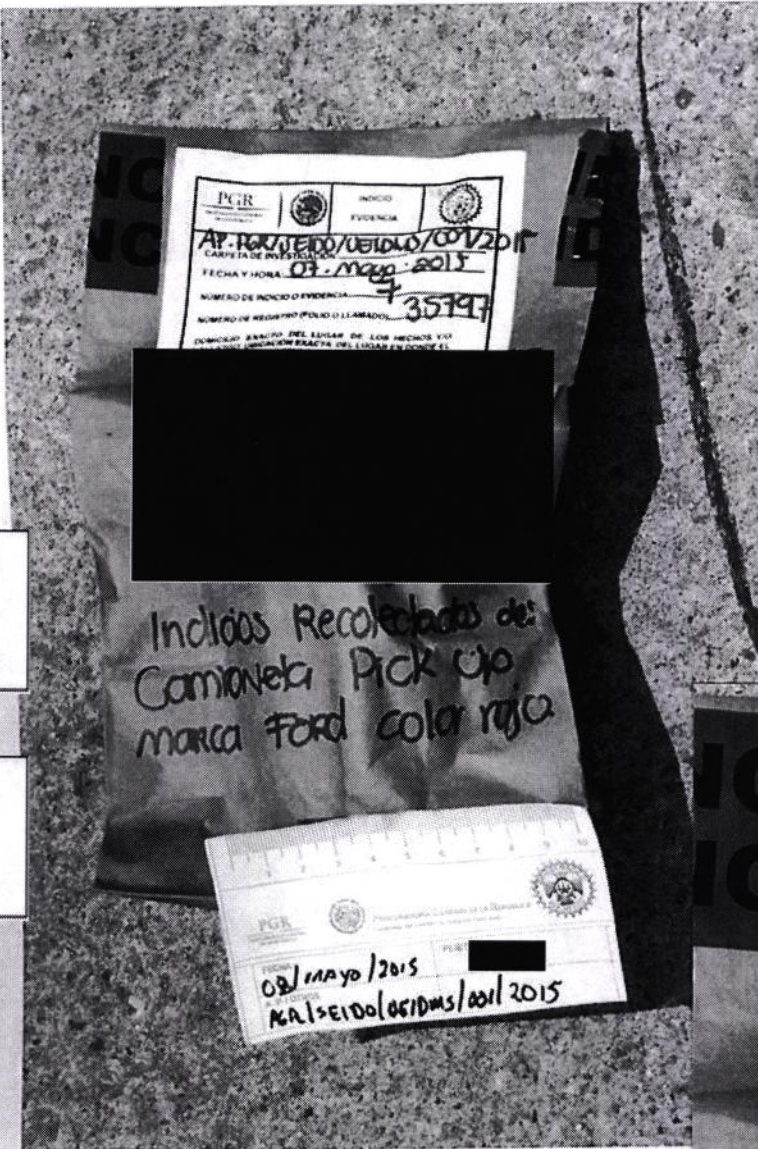 PGR
INDICIO
EVIDENCIA
AP.PGR/SEIDO/UEIDMS/001/2015
CARPETA DE INVESTIGACIÓN
FECHA Y HORA 07.mayo.2015
NÚMERO DE INDICIO O EVIDENCIA 7
NÚMERO DE REGISTRO (FOLIO O LLAMADO) 35797
DOMICILIO EXACTO DEL LUGAR DE LOS HECHOS Y/O
UBICACIÓN EXACTA DEL LUGAR EN DONDE EL
Indicios Recolectados de:
Camioneta Pick Up
marca Ford color rojo
1 2 3 4 5 6 7 8 9 10
PGR
PROCURADURÍA GENERAL DE LA REPÚBLICA
FECHA
08/MAYO/2015
PGR/SEIDO/UEIDMS/001/2015